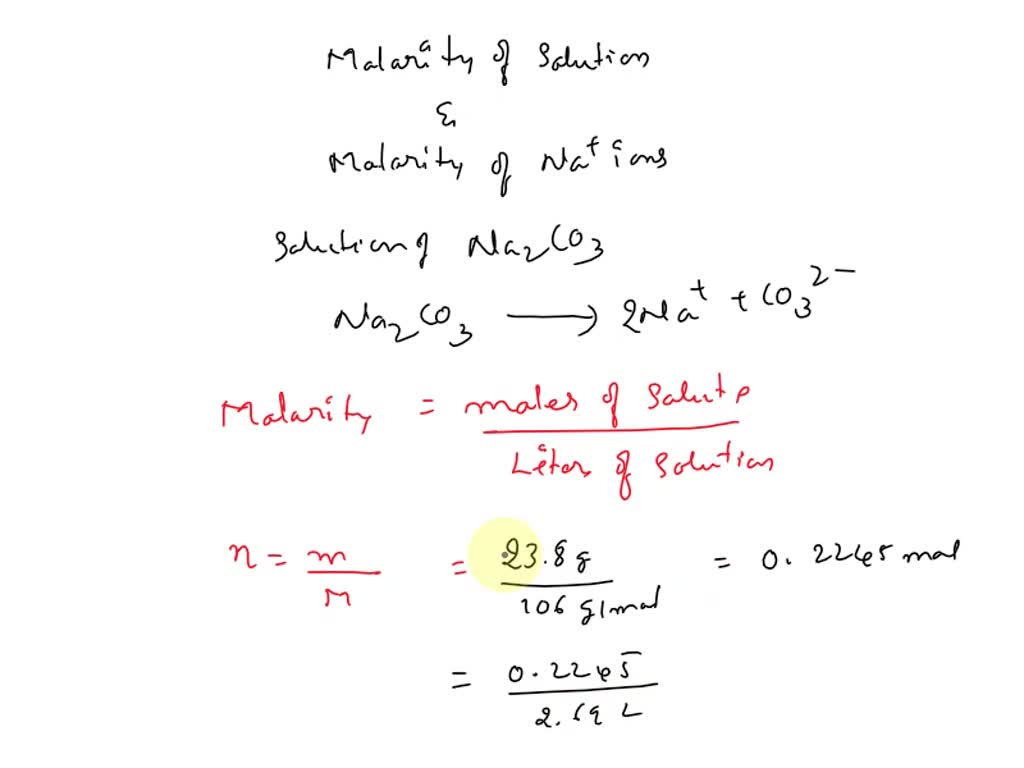 Molarity of Solution
&
Molarity of Na⁺ ions
Solution of Na₂CO₃
Na₂CO₃ ⟶ 2Na⁺ + CO₃²⁻
Molarity = moles of Solute / Liters of Solution
n = m / M = 23.8 g / 106 g/mol = 0.2245 mol
= 0.2245 / 2.69 L